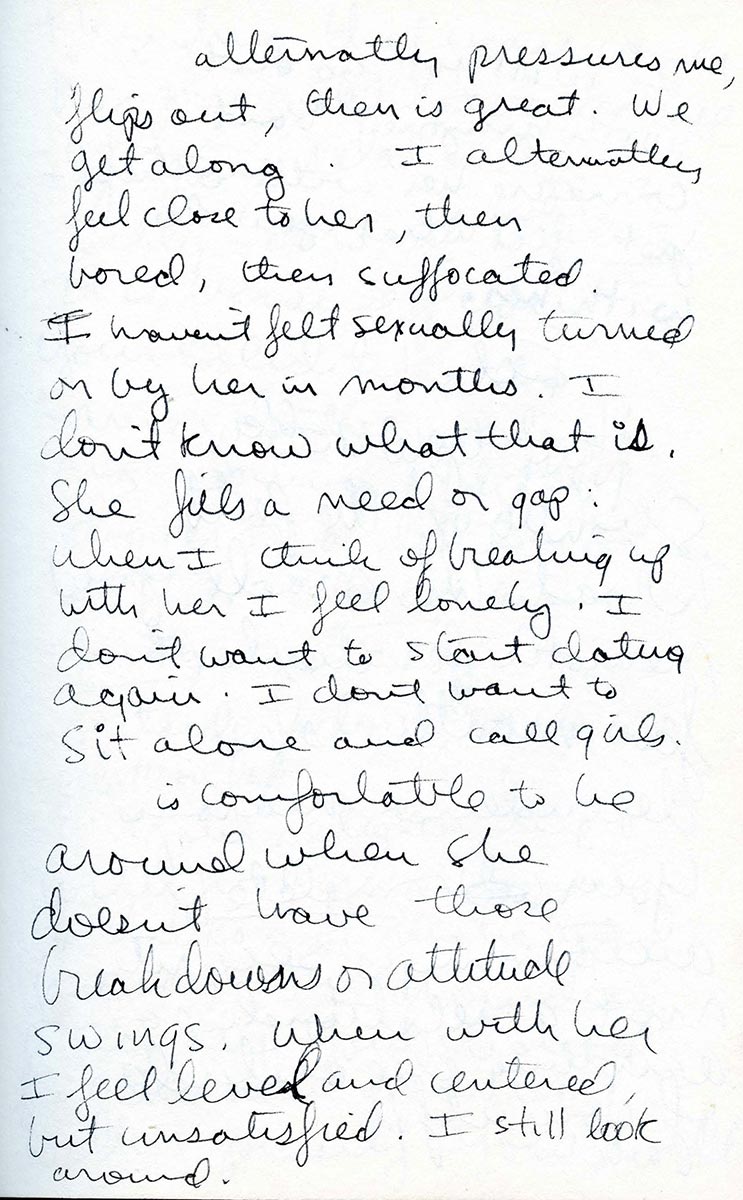 alternatly pressures me,
flips out, then is great. We
get along. I alternatley
feel close to her, then
bored, then suffocated.
I haven't felt sexually turned
on by her in months. I
don't know what that is.
She fills a need or gap:
when I think of breaking up
with her I feel lonely. I
don't want to start dating
again. I don't want to
sit alone and call girls.
is comfortable to be
around when she
doesn't have those
breakdowns or attitude
swings. When with her
I feel level and centered,
but unsatisfied. I still look
around.